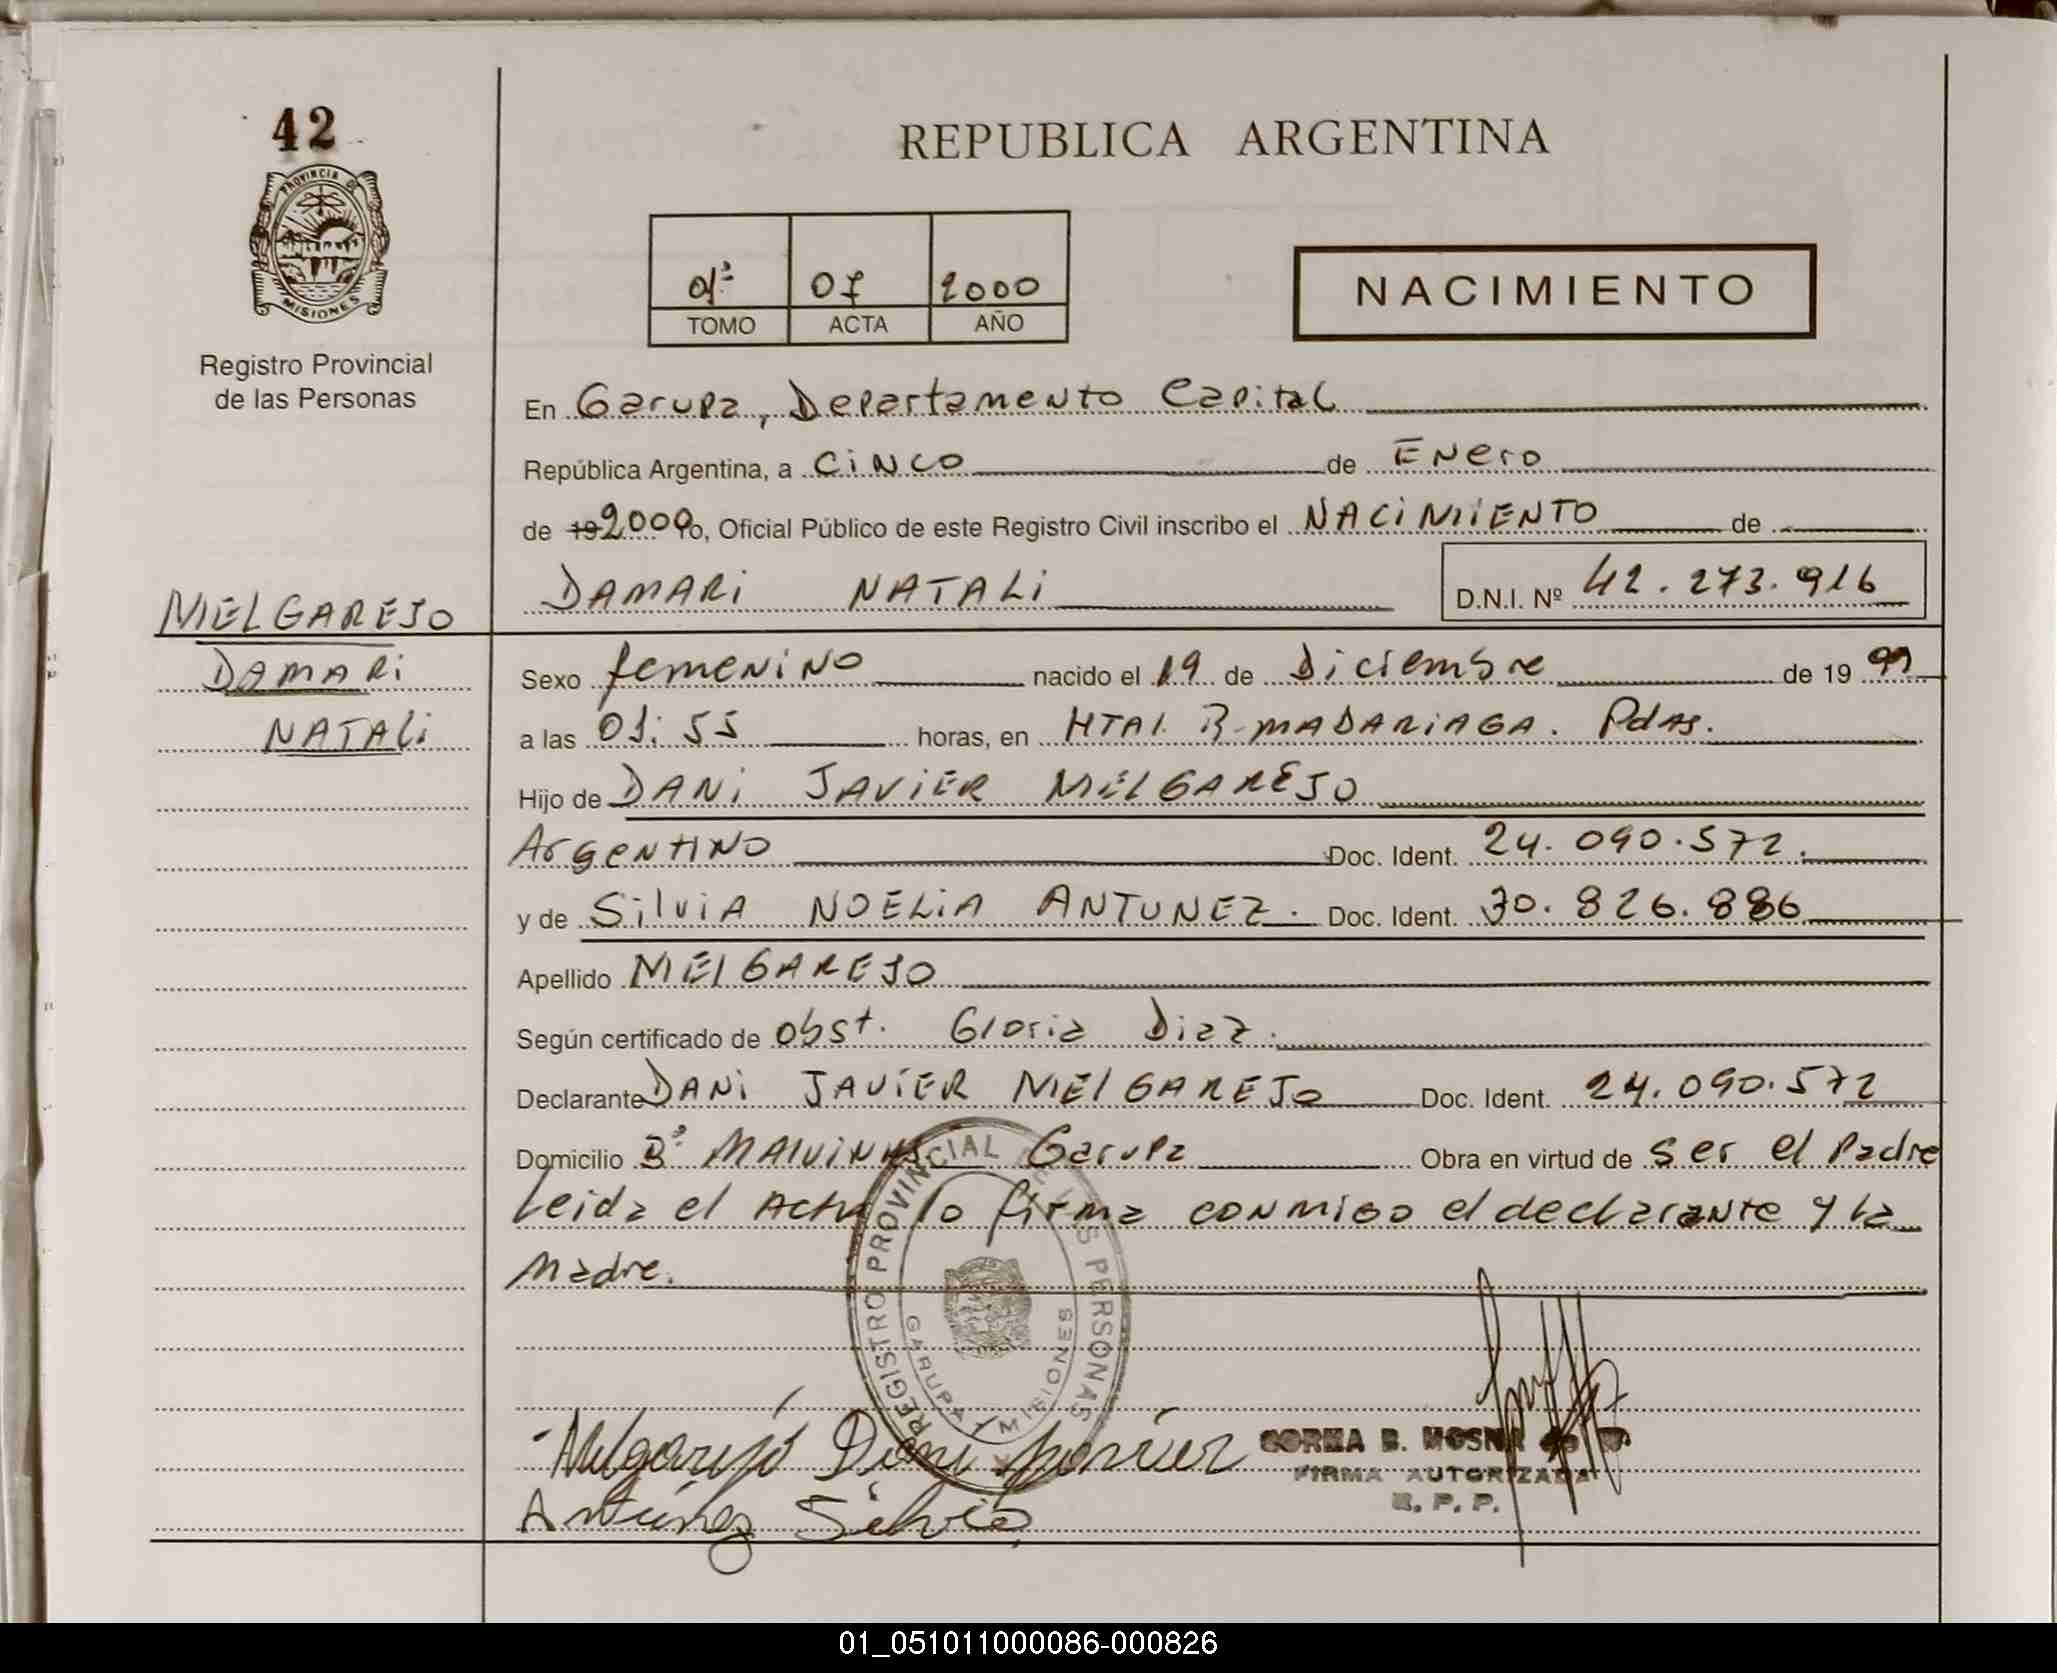 42
PROVINCIA DE
MISIONES
Registro Provincial
de las Personas
REPUBLICA ARGENTINA
01º 07 2000
TOMO ACTA AÑO
NACIMIENTO
En Garupa, Departamento Capital
República Argentina, a CINCO de ENero
de 19 2000 Yo, Oficial Público de este Registro Civil inscribo el NACIMIENTO de
DAMARI NATALI D.N.I. Nº 42.273.916
MELGAREJO
DAMARI
NATALI
Sexo femeNiNo nacido el 19 de Diciembre de 19 99
a las 01:55 horas, en HTAl R. MADARIAGA. Pdas.
Hijo de DANI JAVIER MELGAREJO
ArgeNtiNo Doc. Ident. 24.090.572.
y de SilviA NOELIA ANTUNEZ. Doc. Ident. 30.826.886
Apellido MELGAREJO
Según certificado de obst. Gloria Diaz.
Declarante DANI JAVIER MELGAREJO Doc. Ident. 24.090.572
Domicilio Bº MAlviNAS Garupa Obra en virtud de ser el Padre
Leida el Acta lo firma conmigo el declarante y la
Madre.
REGISTRO PROVINCIAL DE LAS PERSONAS
GARUPA MISIONES
Melgarejo Dani Javier
FIRMA AUTORIZADA
R. P. P.
Antúnez Silvia
01_051011000086-000826